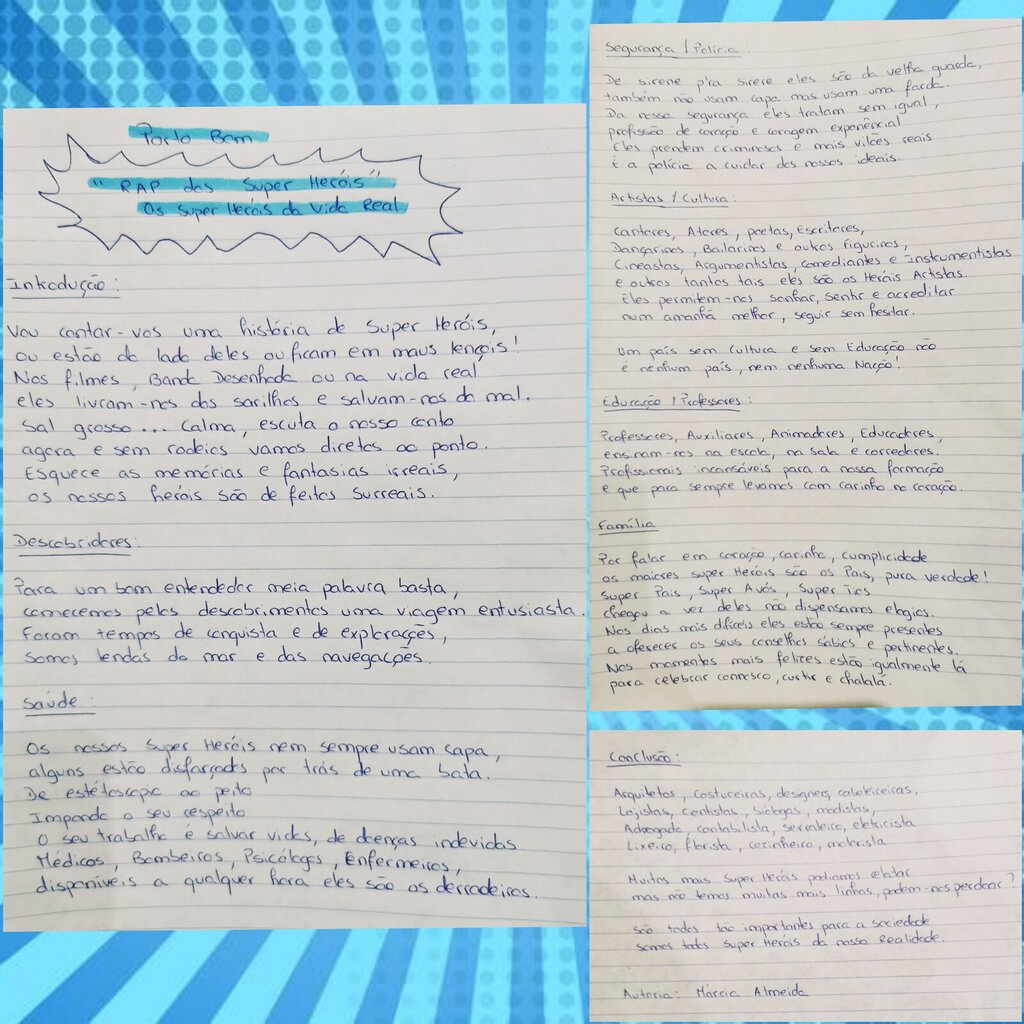 Porto Bom
"RAP dos Super Heróis"
Os Super Heróis da Vida Real
Introdução:
Vou contar-vos uma história de Super Heróis,
ou estão do lado deles ou ficam em maus lençois!
Nos filmes, Banda Desenhada ou na vida real
eles livram-nos dos sarilhos e salvam-nos do mal.
Sal grosso... Calma, escuta o nosso conto
agora e sem rodeios vamos diretos ao ponto.
Esquece as memórias e fantasias irreais,
os nossos heróis são de feitos surreais.
Descobridores:
Para um bom entendedor meia palavra basta,
comecemos pelos descobrimentos uma viagem entusiasta.
Foram tempos de conquista e de explorações,
somos lendas do mar e das navegações.
Saúde:
Os nossos Super Heróis nem sempre usam capa,
alguns estão disfarçados por trás de uma bata.
De estétoscopio ao peito
Impondo o seu respeito
O seu trabalho é salvar vidas, de doenças indevidas
Médicos, Bombeiros, Psicólogos, Enfermeiros,
disponíveis a qualquer hora eles são os derradeiros.
Segurança / Polícia:
De sirene p'ra sirene eles são da velha guarda,
também não usam capa mas usam uma farda.
Da nossa segurança eles tratam sem igual,
profissão de coração e coragem exponêncial
Eles prendem criminosos e mais vilões reais
É a polícia a cuidar dos nossos ideais.
Artistas / Cultura:
Cantores, Atores, poetas, Escritores,
Dançarinos, Bailarinos e outros figurinos,
Cineastas, Argumentistas, comediantes e Instrumentistas
e outros tantos tais eles são os Heróis Artistas.
Eles permitem-nos sonhar, sentir e acreditar
num amanhã melhor, seguir sem hesitar.
Um país sem Cultura e sem Educação não
é nenhum país, nem nenhuma Nação!
Educação / Professores:
Professores, Auxiliares, Animadores, Educadores,
ensinam-nos na escola, na sala e corredores.
Profissionais incansáveis para a nossa formação
e que para sempre levamos com carinho no coração.
Família
Por falar em coração, carinho, cumplicidade
os maiores super Heróis são os Pais, pura verdade!
Super Pais, Super Avós, Super Tios
chegou a vez deles não dispensamos elogios.
Nos dias mais difíceis eles estão sempre presentes
a oferecer os seus conselhos sábios e pertinentes.
Nos momentos mais felizes estão igualmente lá
para celebrar connosco, curtir e chalalá.
Conclusão:
Arquitetos, costureiras, designer, cabeleireiras,
Lojistas, cientistas, biólogos, modistas,
Advogado, contabilista, serralheiro, eletricista
Lixeiro, florista, cozinheiro, motorista
Muitos mais Super Heróis podiamos relatar
mas não temos muitas mais linhas, podem-nos perdoar?
São todos tão importantes para a sociedade
somos todos Super Heróis da nossa Realidade.
Autoria: Márcia Almeida